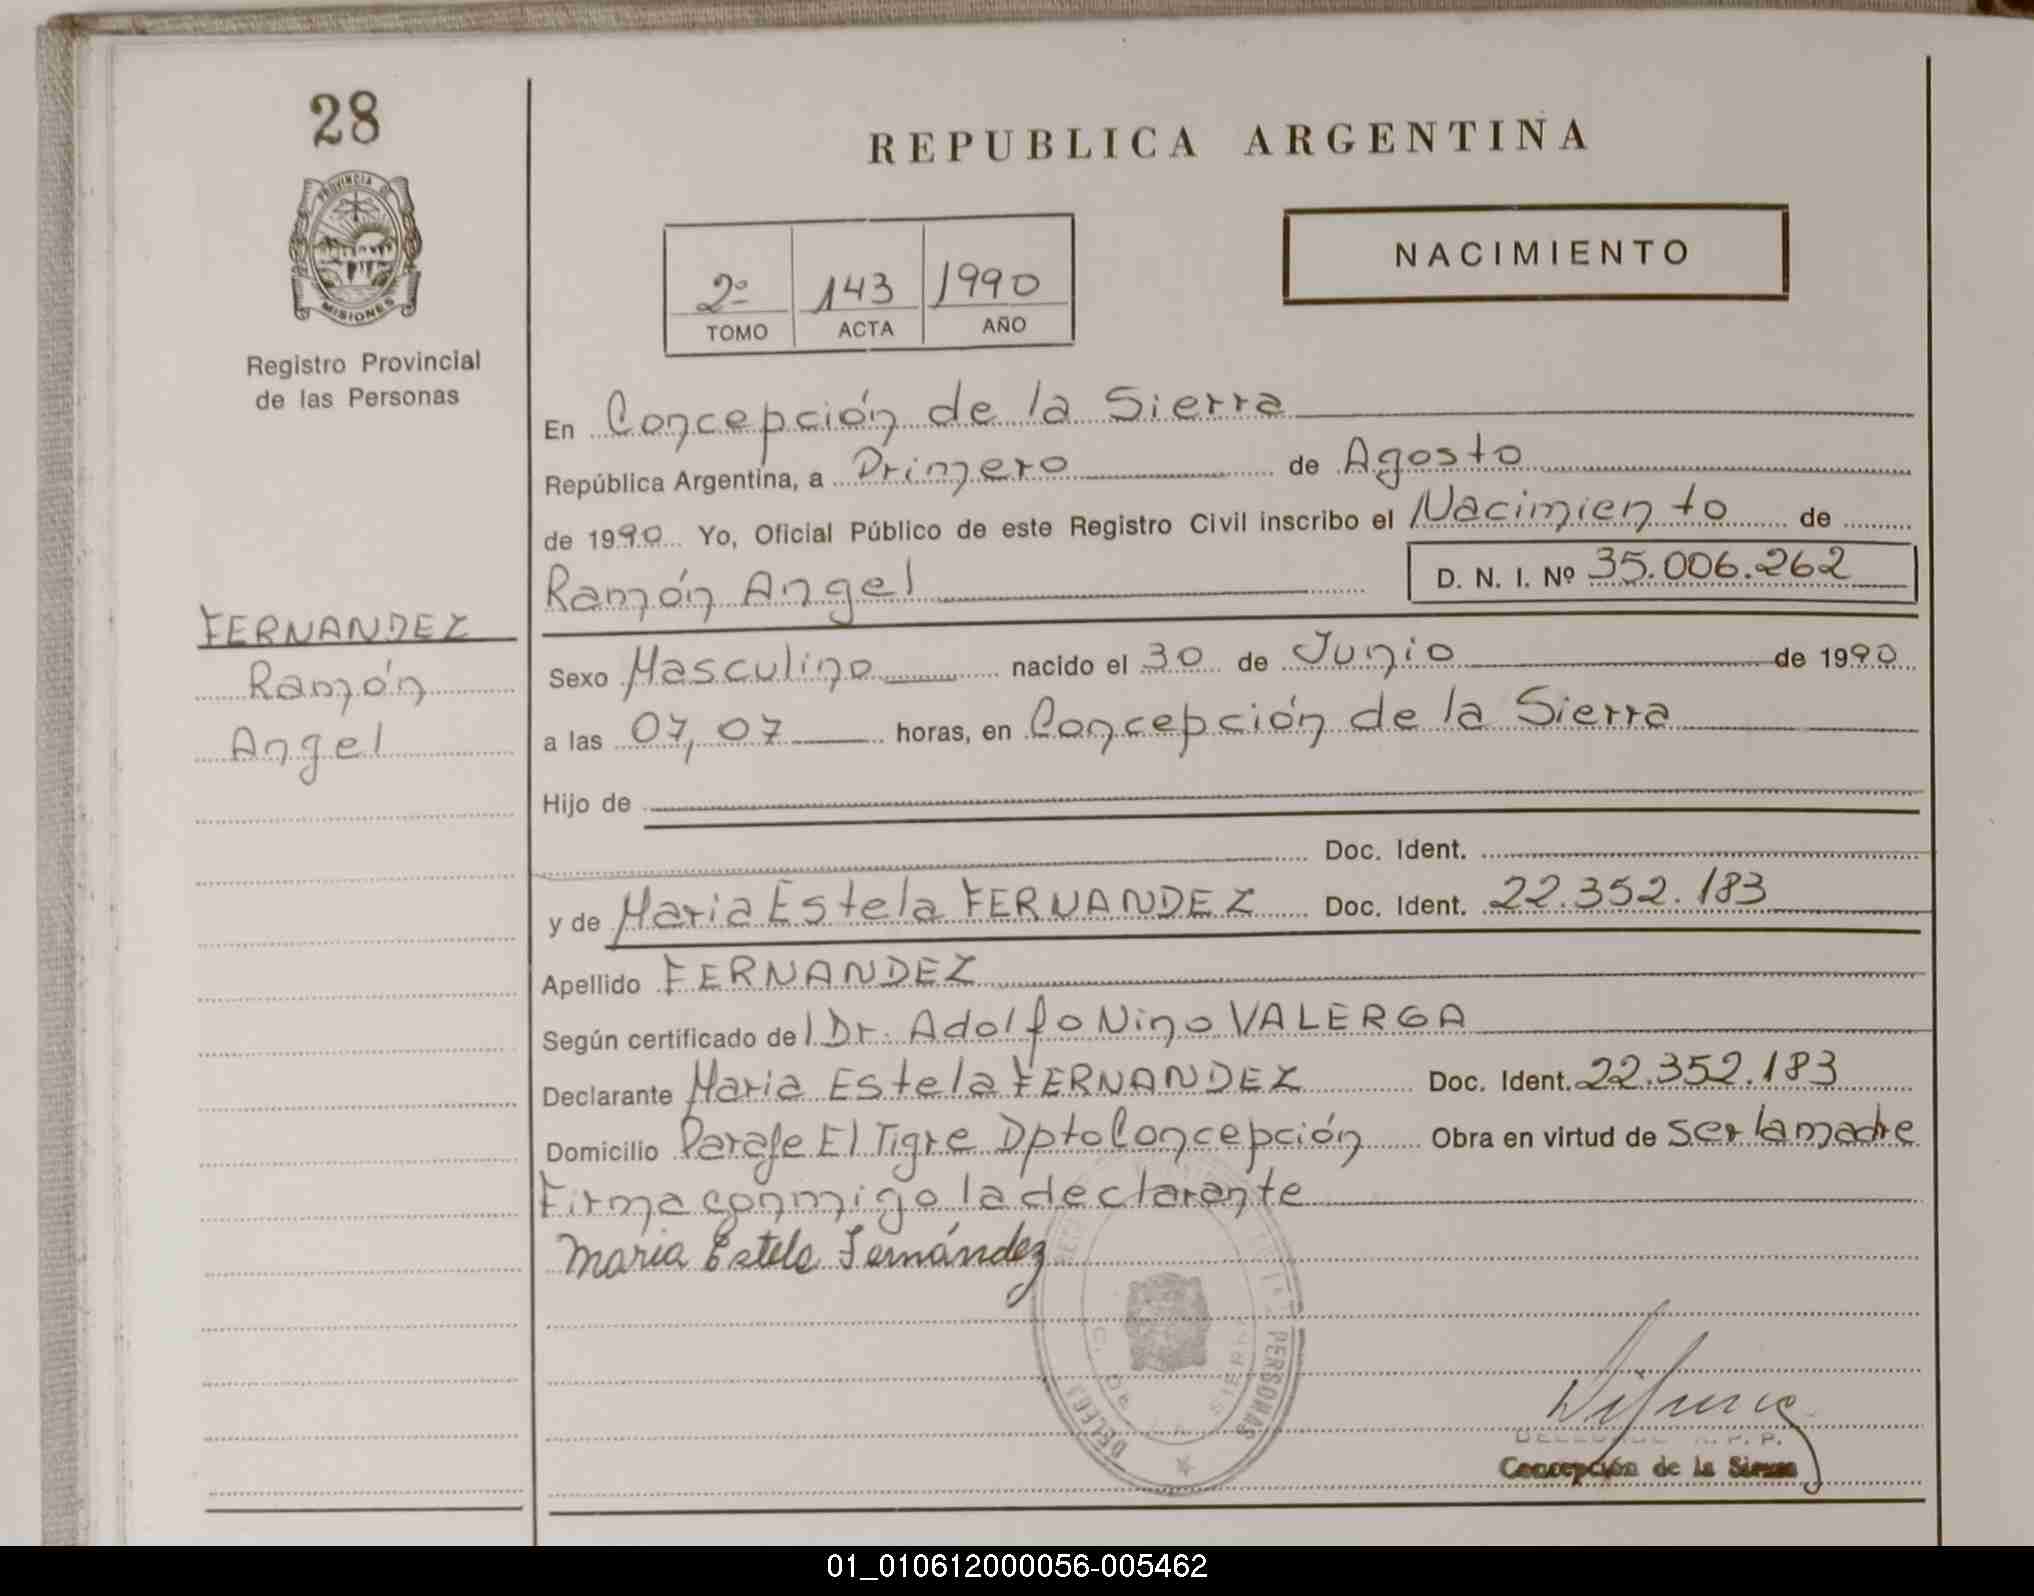 28
PROVINCIA DE
MISIONES
Registro Provincial
de las Personas
FERNANDEZ
Ramón
Angel
REPUBLICA ARGENTINA
NACIMIENTO
2º 143 1990
TOMO ACTA AÑO
En Concepción de la Sierra
República Argentina, a Primero de Agosto
de 1990 Yo, Oficial Público de este Registro Civil inscribo el Nacimiento de
Ramón Angel D. N. I. Nº 35.006.262
Sexo Masculino nacido el 30 de Junio de 1990
a las 07,07 horas, en Concepción de la Sierra
Hijo de
Doc. Ident.
y de Maria Estela FERNANDEZ Doc. Ident. 22.352.183
Apellido FERNANDEZ
Según certificado del Dr. Adolfo Nino VALERGA
Declarante Maria Estela FERNANDEZ Doc. Ident. 22.352.183
Domicilio Paraje El Tigre Dpto Concepción Obra en virtud de ser la madre
Firma conmigo la declarante
Maria Estela Fernández
PERSONAS
C. DE LA SIERRA
Concepción de la Sierra
01_010612000056-005462